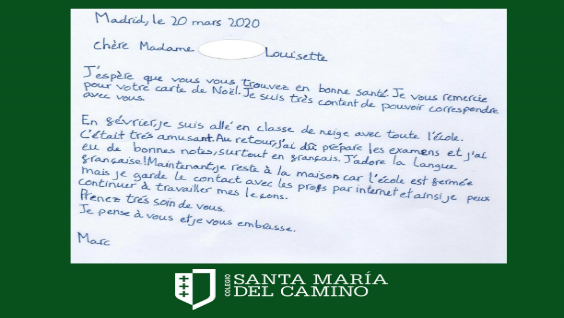 Madrid, le 20 mars 2020
chère Madame Louisette
J'espère que vous vous trouvez en bonne santé. Je vous remercie
pour votre carte de Noël. Je suis très content de pouvoir correspondre
avec vous.
En février, je suis allé en classe de neige avec toute l'école.
C'était très amusant. Au retour, j'ai dû préparé les examens et j'ai
eu de bonnes notes, surtout en français. J'adore la langue
française! Maintenant, je reste à la maison car l'école est fermée
mais je garde le contact avec les profs par internet et ainsi je peux
continuer à travailler mes leçons.
Prenez très soin de vous.
Je pense à vous et je vous embrasse.
Marc
COLEGIO
SANTA MARÍA
DEL CAMINO